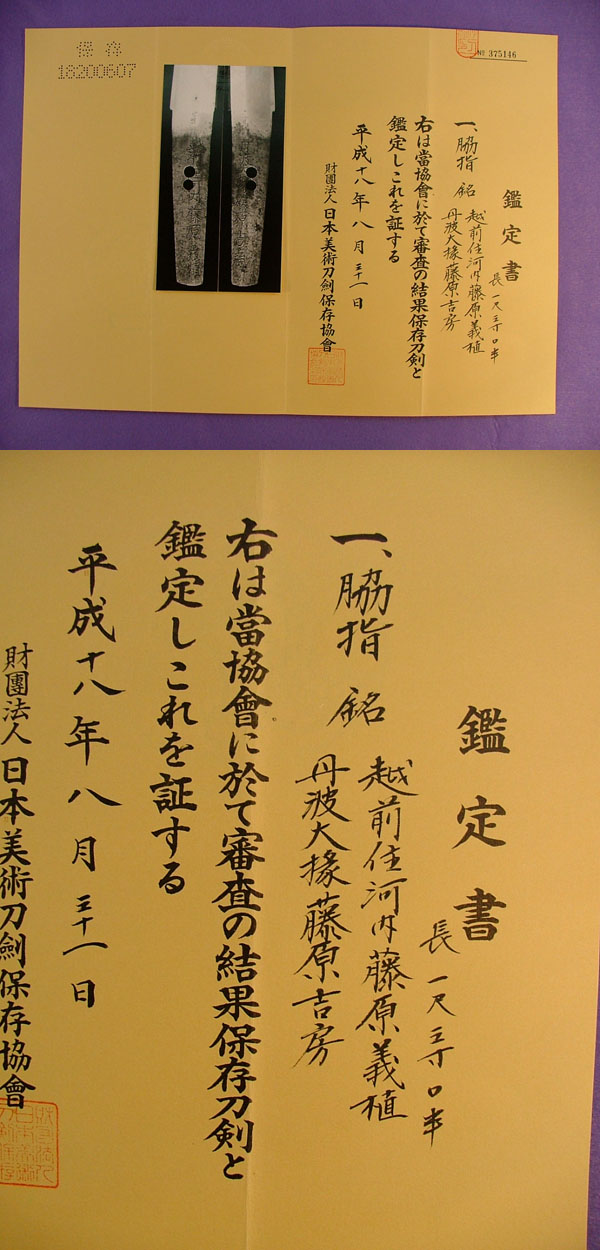 保存
18200607
No 375146
鑑定書
長一尺三寸〇半
一、脇指 銘 越前住河内藤原義植
丹波大掾藤原吉房
右は當協會に於て審査の結果保存刀剣と
鑑定しこれを証する
平成十八年八月三十一日
財團法人日本美術刀劍保存協會
鑑定書
長一尺三寸〇半
一、脇指 銘 越前住河内藤原義植
丹波大掾藤原吉房
右は當協會に於て審査の結果保存刀剣と
鑑定しこれを証する
平成十八年八月三十一日
財團法人日本美術刀劍保存協會